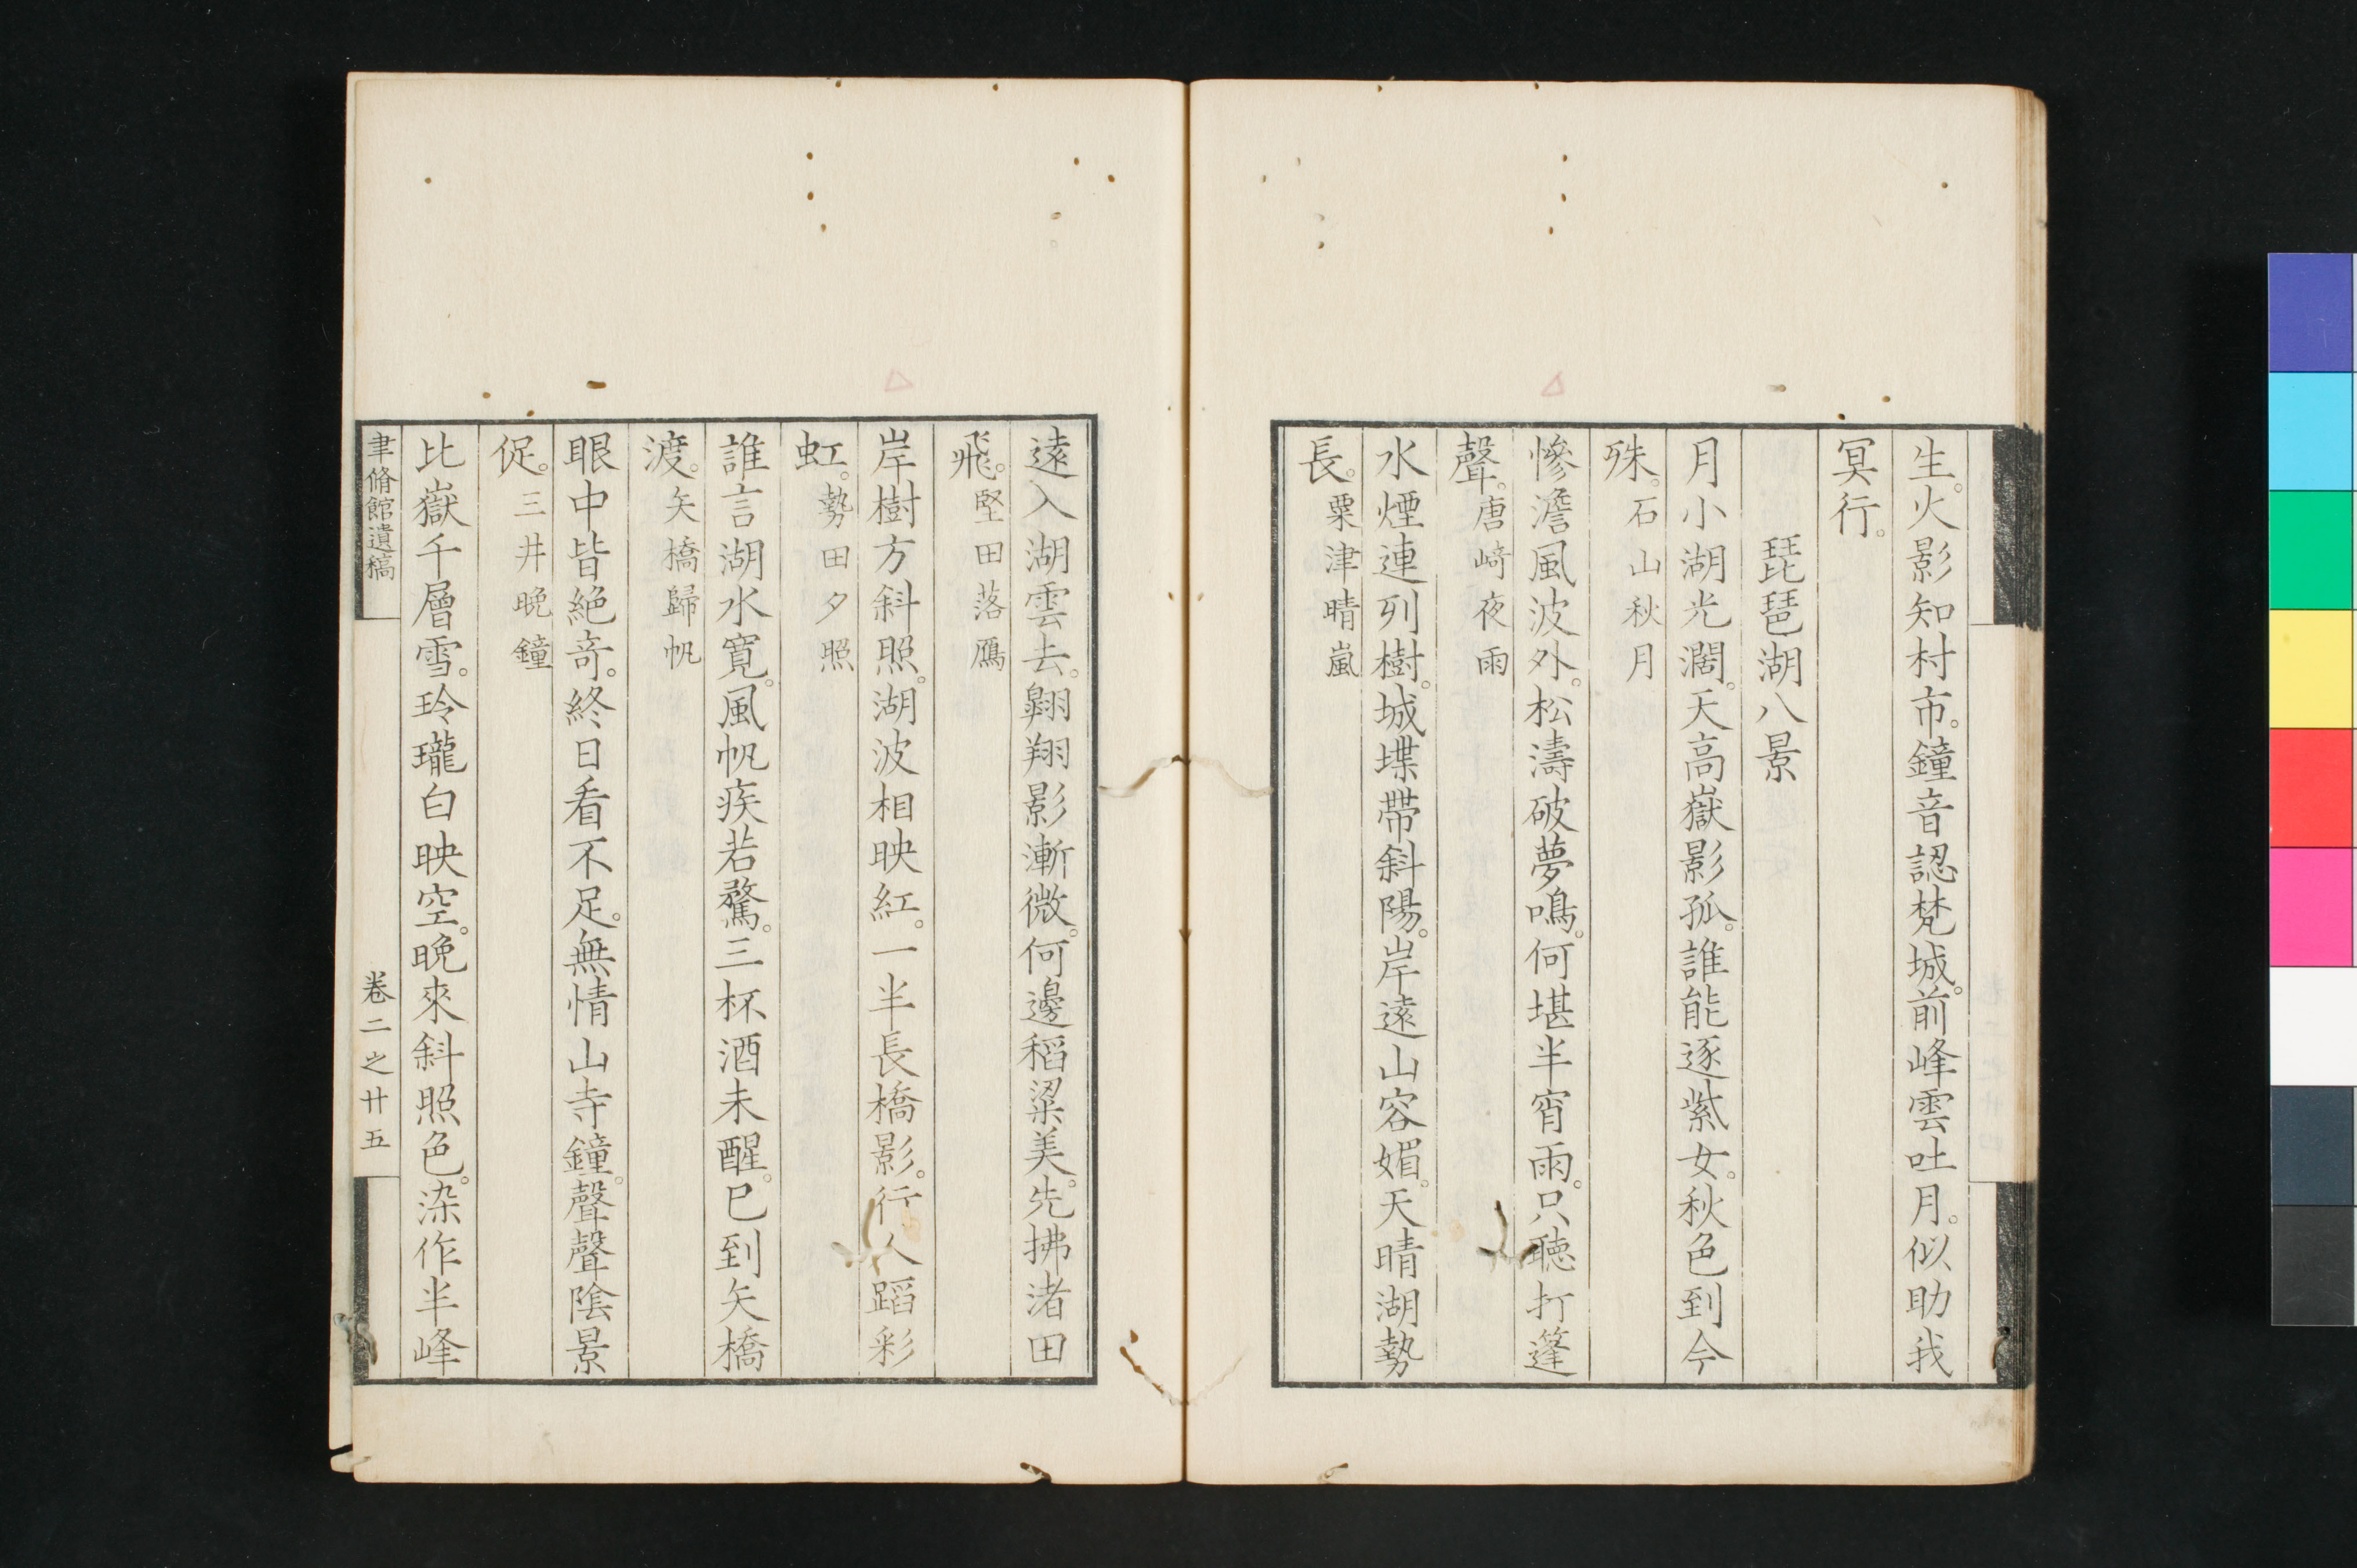 生。火影知村市。鐘音認梵城。前峰雲吐月。似助我
冥行。
琵琶湖八景
月小湖光濶。天高嶽影孤。誰能逐紫女。秋色到今
殊。石山秋月
慘澹風波外。松濤破夢鳴。何堪半宵雨。只聽打篷
聲。唐﨑夜雨
水煙連列樹。城堞帶斜陽。岸遠山容媚。天晴湖勢
長。粟津晴嵐
遠入湖雲去。翺翔影漸微。何邊稻粱美。先拂渚田
飛。堅田落鴈
岸樹方斜照。湖波相映紅。一半長橋影。行人蹈彩
虹。勢田夕照
誰言湖水寬。風帆疾若騖。三杯酒未醒。已到矢橋
渡。矢橋歸帆
眼中皆絶奇。終日看不足。無情山寺鐘。聲聲陰景
促。三井晚鐘
比嶽千層雪。玲瓏白映空。晚來斜照色。染作半峰
聿脩館遺稿
卷二之廿五